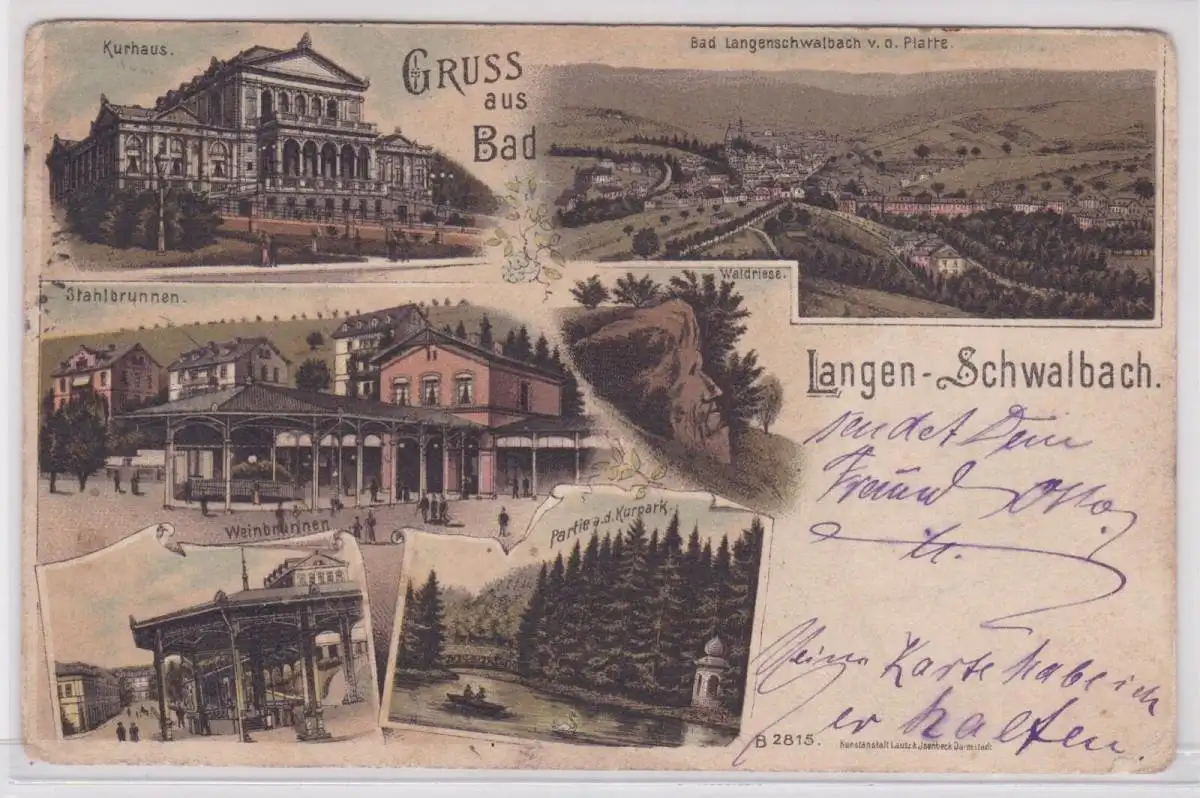 Kurhaus.
GRUSS
aus
Bad
Bad Langenschwalbach v. d. Platte.
Stahlbrunnen.
Waldriese.
Langen-Schwalbach.
sendet Dein
Freund Otto.
Weinbrunnen
Partie a.d. Kurpark.
Meine Karte habe ich
erhalten.
B 2815.
Kunstanstalt Lautz & Jsenbeck Darmstadt